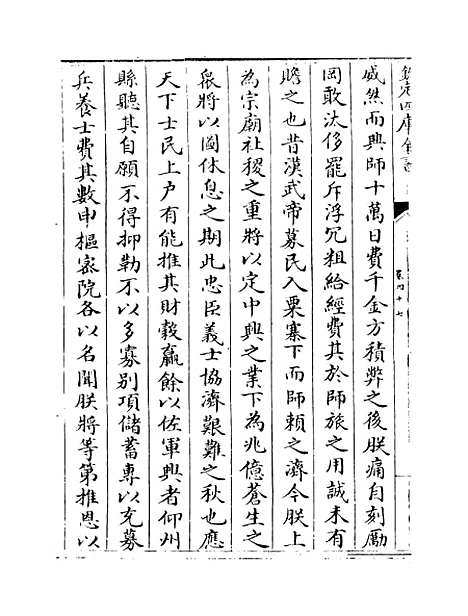 欽定四庫全書
卷四十七
威然而興師十萬日費千金方積弊之後朕痛自刻勵
罔敢汰侈罷斥浮冗粗給經費其於師旅之用誠未有
贍之也昔漢武帝募民入粟塞下而師賴之濟今朕上
為宗廟社稷之重將以定中興之業下為兆億蒼生之
衆將以圖休息之期此忠臣義士協濟艱難之秋也應
天下士民上户有能推其財穀贏餘以佐軍興者仰州
縣聽其自願不得抑勒不以多寡别項儲蓄專以充募
兵養士費其數申樞宻院各以名聞朕將等第推恩以